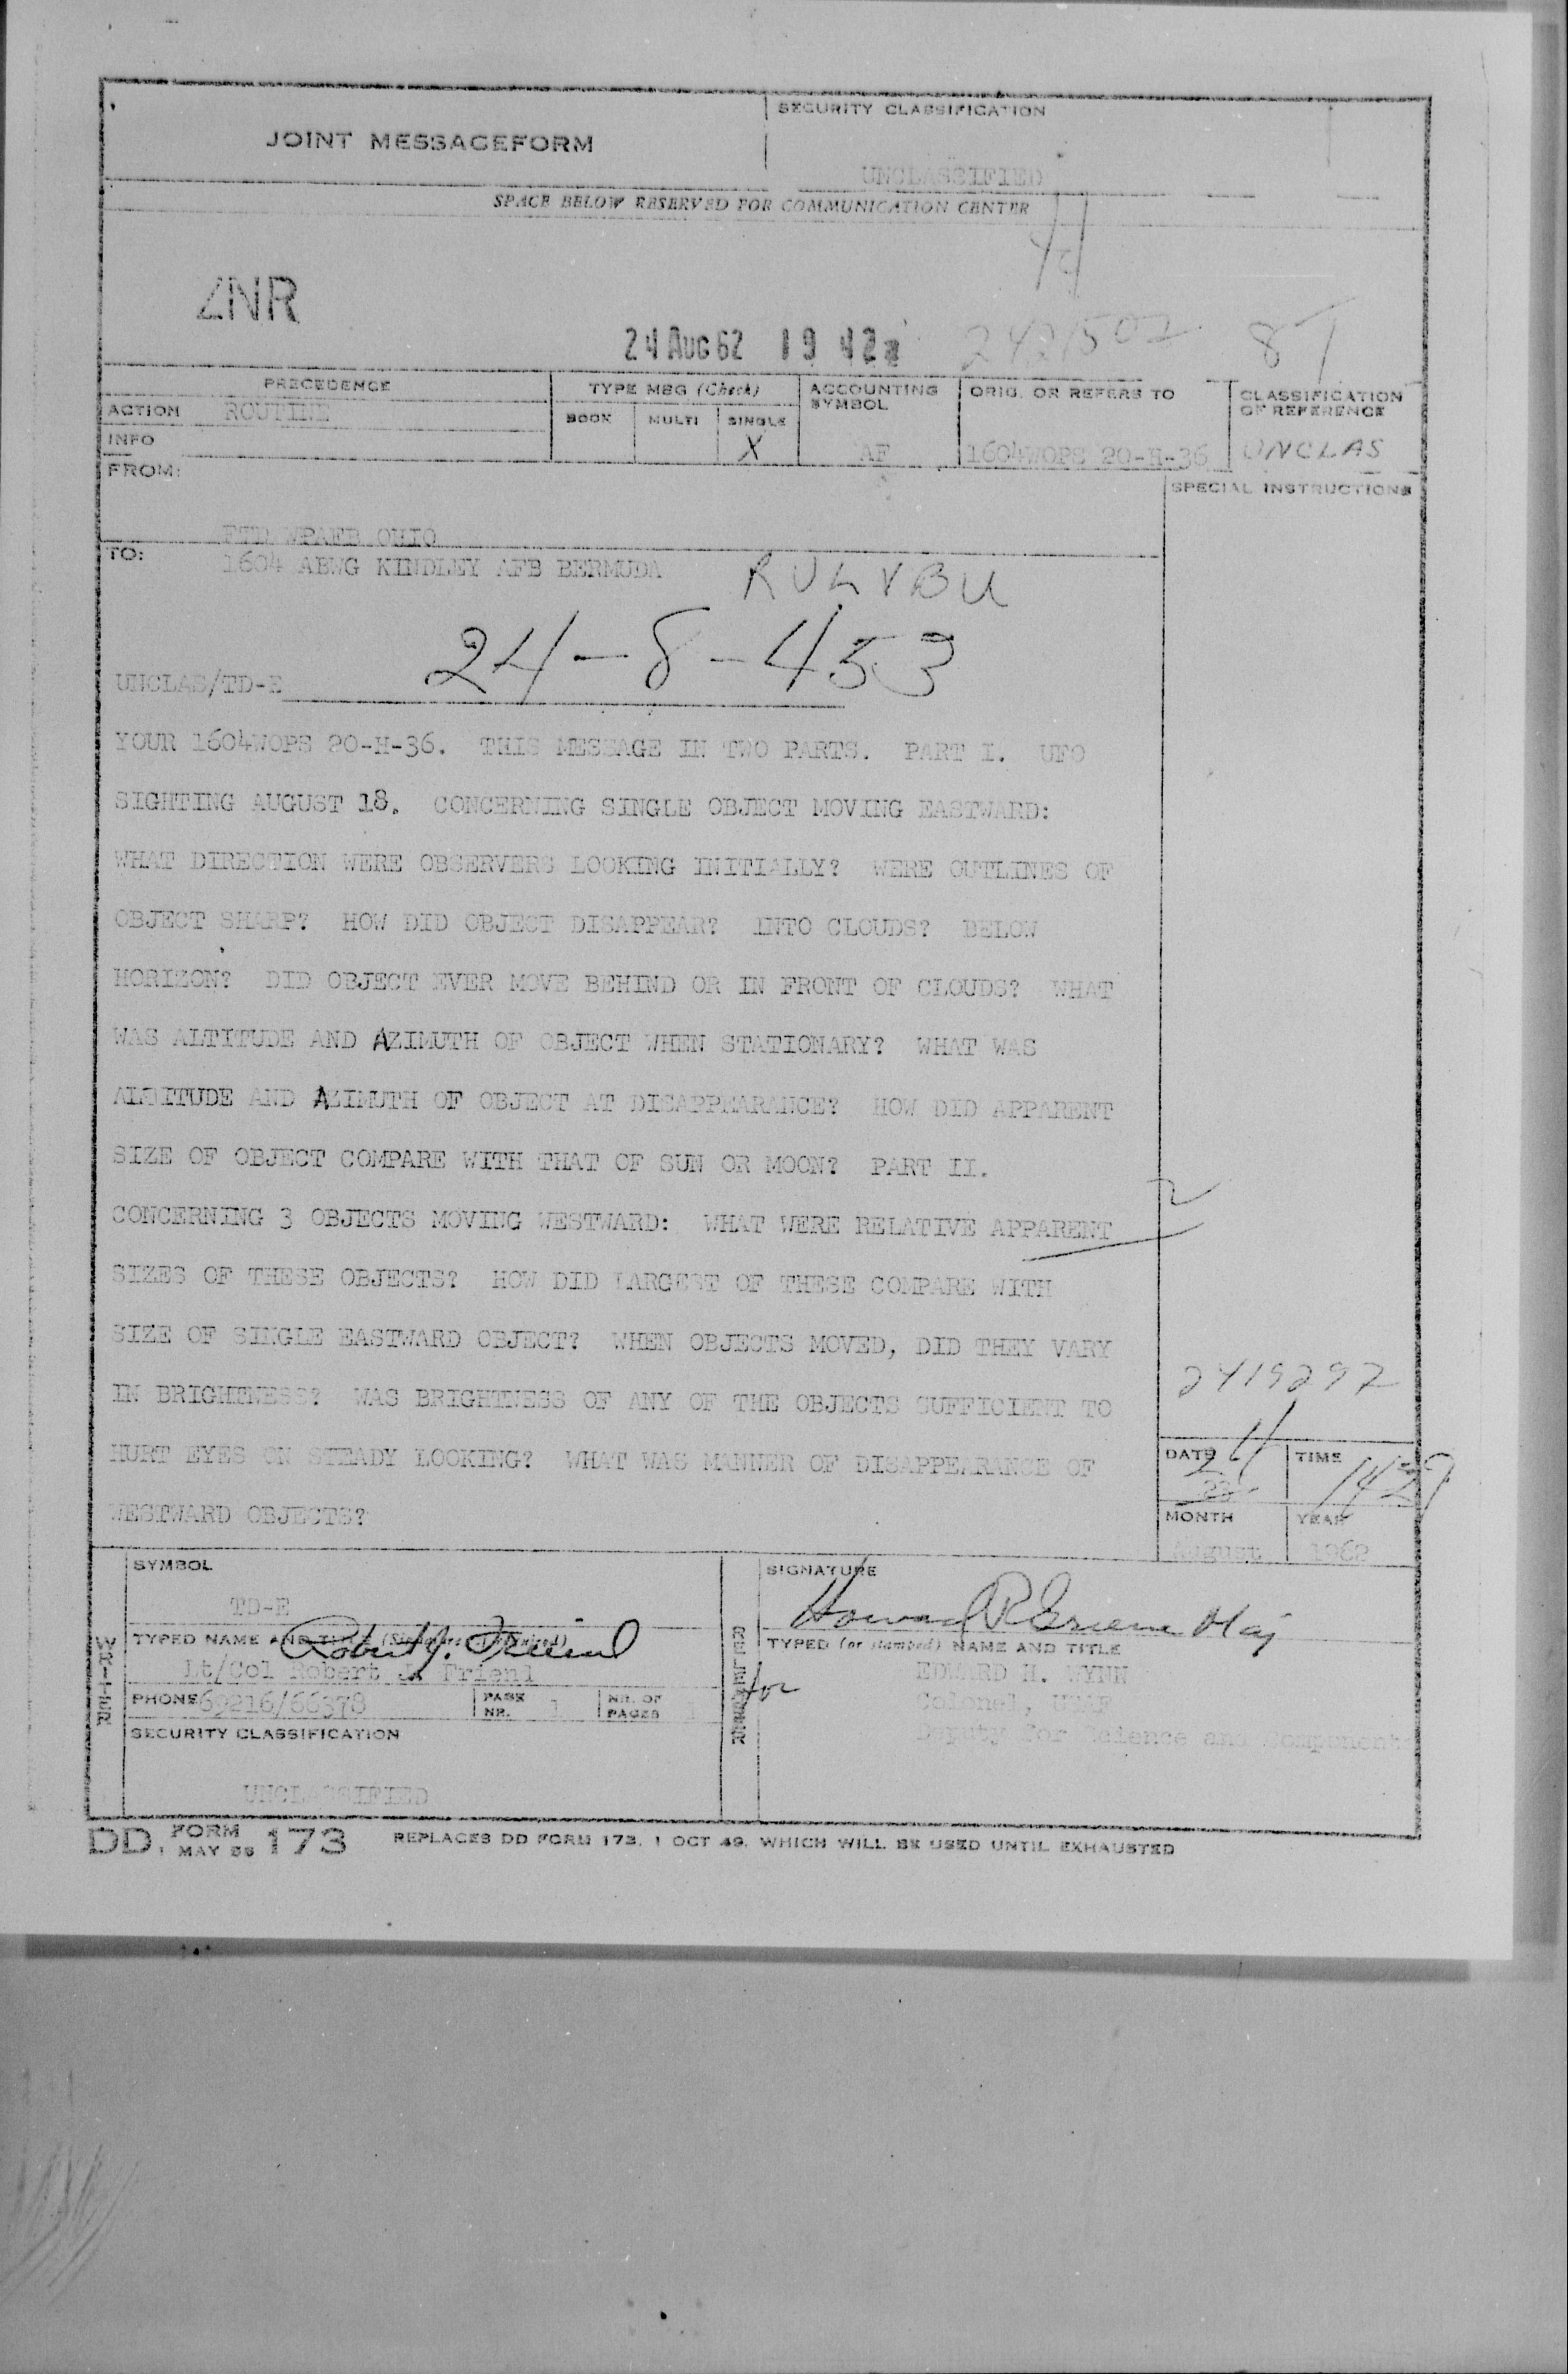 SECURITY CLASSIFICATION
JOINT MESSAGEFORM
UNCLASSIFIED
SPACE BELOW RESERVED FOR COMMUNICATION CENTER
ZNR
24 AUG 62 19 42z
PRECEDENCE
TYPE MSG (Check)
ACCOUNTING SYMBOL
ORIG. OR REFERS TO
CLASSIFICATION OF REFERENCE
ACTION ROUTINE
BOOK MULTI SINGLE
INFO
X
AF
1604WOPS 20-H-36
UNCLAS
FROM:
SPECIAL INSTRUCTIONS
FTD WPAFB OHIO
TO: 1604 ABWG KINDLEY AFB BERMUDA
UNCLAS/TD-E 24-8-453
YOUR 1604WOPS 20-H-36. THIS MESSAGE IN TWO PARTS. PART I. UFO
SIGHTING AUGUST 18. CONCERNING SINGLE OBJECT MOVING EASTWARD:
WHAT DIRECTION WERE OBSERVERS LOOKING INITIALLY? WERE OUTLINES OF
OBJECT SHARP? HOW DID OBJECT DISAPPEAR? INTO CLOUDS? BELOW
HORIZON? DID OBJECT EVER MOVE BEHIND OR IN FRONT OF CLOUDS? WHAT
WAS ALTITUDE AND AZIMUTH OF OBJECT WHEN STATIONARY? WHAT WAS
ALTITUDE AND AZIMUTH OF OBJECT AT DISAPPEARANCE? HOW DID APPARENT
SIZE OF OBJECT COMPARE WITH THAT OF SUN OR MOON? PART II.
CONCERNING 3 OBJECTS MOVING WESTWARD: WHAT WERE RELATIVE APPARENT
SIZES OF THESE OBJECTS? HOW DID LARGEST OF THESE COMPARE WITH
SIZE OF SINGLE EASTWARD OBJECT? WHEN OBJECTS MOVED, DID THEY VARY
IN BRIGHTNESS? WAS BRIGHTNESS OF ANY OF THE OBJECTS SUFFICIENT TO
HURT EYES ON STEADY LOOKING? WHAT WAS MANNER OF DISAPPEARANCE OF
WESTWARD OBJECTS?
DATE 24
TIME 1429
MONTH
YEAR
August
1962
SYMBOL
TD-E
SIGNATURE
Howard R Greene Maj
TYPED NAME AND TITLE
Robert J. Friend
Lt/Col Robert J. Friend
TYPED (or stamped) NAME AND TITLE
for
EDWARD H. WYNN
Colonel, USAF
Deputy for Science and Components
WRITER
RELEASER
PHONE 69216/66378
PAGE NR. 1
NR. OF PAGES
SECURITY CLASSIFICATION
UNCLASSIFIED
DD FORM 173
REPLACES DD FORM 173, 1 OCT 49, WHICH WILL BE USED UNTIL EXHAUSTED